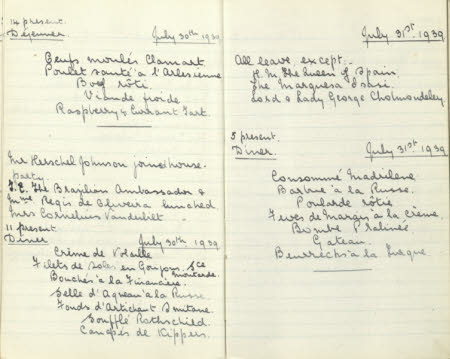 14 present.
Déjeuner. July 30th 1939
Oeufs moulés Clamart
Poulet sauté à l'Arlesienne
Boef rôti.
Viande froide.
Raspberry & Currant Tart.
Mr Herschel Johnson joined house-
party.
T.E. The Brazilian Ambassador &
Mme Regis de Oliveira lunched
Mrs Cornelius Vanderbilt
11 present
Dîner July 30th 1939
Crème de Volaille
Filets de Soles en Goujons. Sce
moutarde.
Bouchés à la Financière.
Selle d'Agneau à la Russe
Fonds d'Artichaut Smitane.
Soufflé Rothschild.
Canapés de Kippers.
July 31st 1939
All leave except..
H.M. The Queen of Spain.
The Marquesa
Lord & Lady George Cholmondeley
5 present.
Dîner. July 31st 1939
Consommé Madrilene
Barbue à la Russe.
Poularde rôtie
Feves de Marais à la crème.
Bombe Pralinée
Gateau.
à la